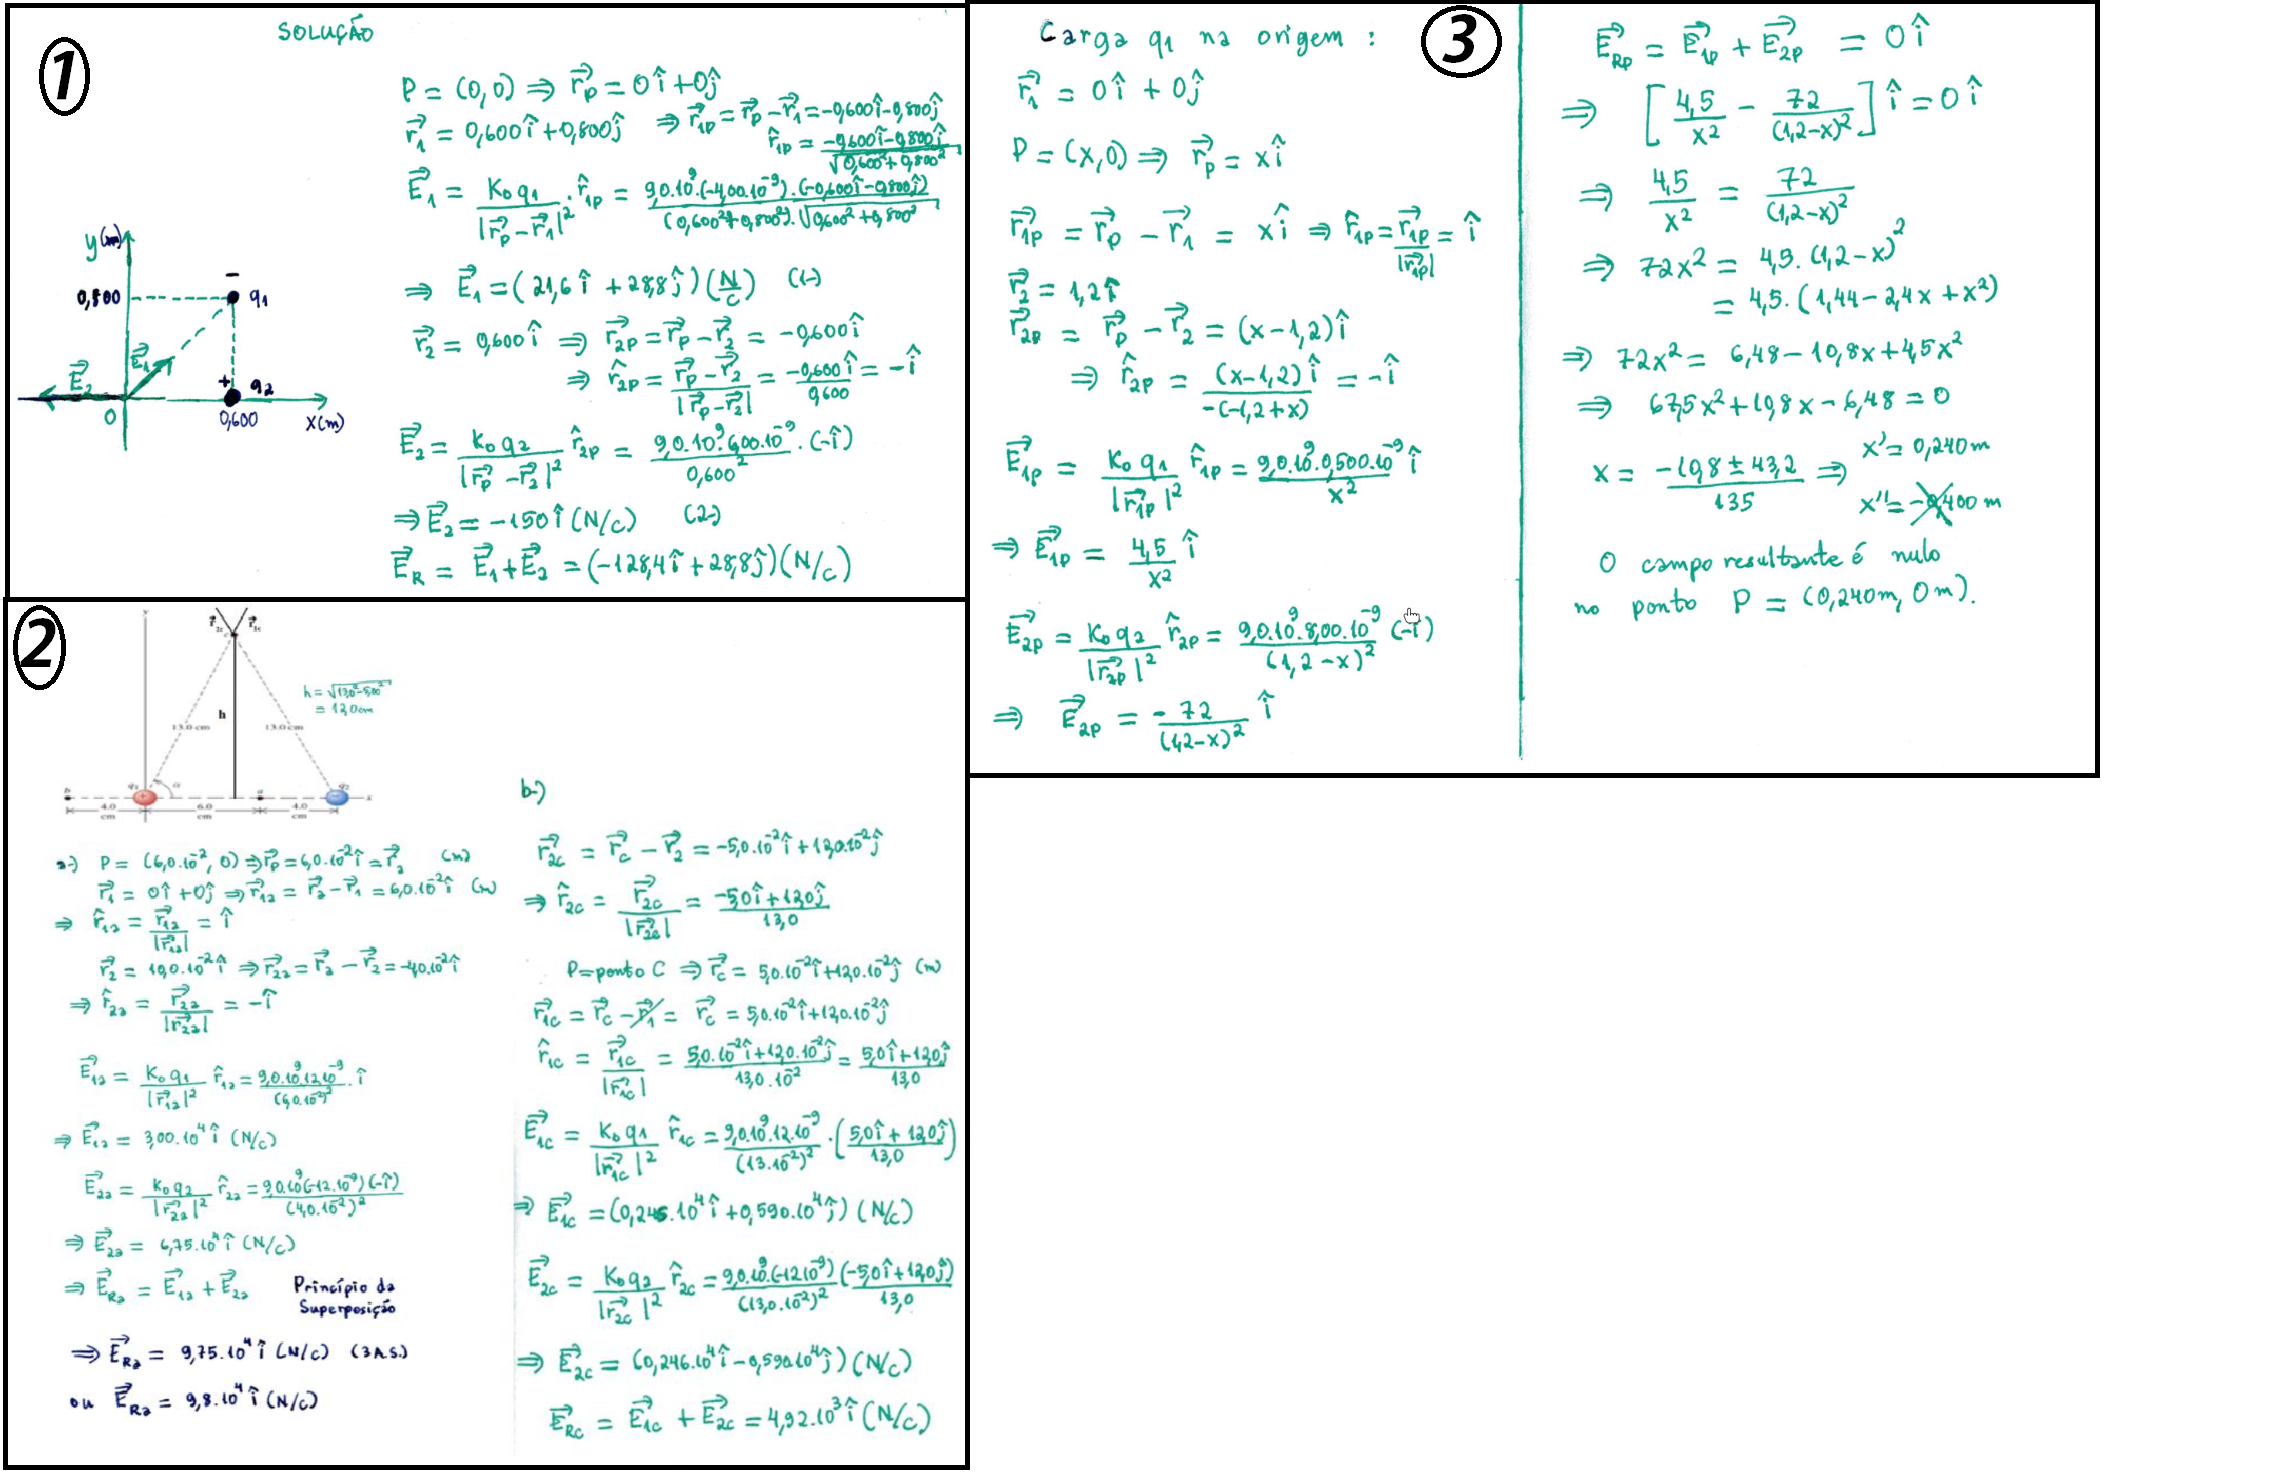 SOLUÇÃO
1
P = (0,0) ⇒ r⃗p = 0î + 0ĵ
r⃗1 = 0,600î + 0,800ĵ ⇒ r⃗1p = r⃗p - r⃗1 = -0,600î - 0,800ĵ
r̂1p = (-0,600î - 0,800ĵ)/√(0,600² + 0,800²)
E⃗1 = K0 q1/|r⃗p - r⃗1|² · r̂1p = 9,0.10⁹.(-4,00.10⁻⁹).(-0,600î - 0,800ĵ)/((0,600² + 0,800²).√(0,600² + 0,800²))
⇒ E⃗1 = (21,6î + 28,8ĵ)(N/C) (1-)
r⃗2 = 0,600î ⇒ r⃗2p = r⃗p - r⃗2 = -0,600î
⇒ r̂2p = (r⃗p - r⃗2)/|r⃗p - r⃗2| = -0,600î/0,600 = -î
E⃗2 = K0 q2/|r⃗p - r⃗2|² r̂2p = 9,0.10⁹.6,00.10⁻⁹/0,600² .(-î)
⇒ E⃗2 = -150î (N/C) (2-)
E⃗R = E⃗1 + E⃗2 = (-128,4î + 28,8ĵ)(N/C)
y(m)
0,800
- q1
E⃗1
E⃗2
+ q2
0
0,600
x(m)
2
y
r⃗2c r⃗1c
c
h = √(13,0² - 5,00²)
= 12,0cm
h
13.0 cm 13.0 cm
b q1 α a q2 x
4.0 cm 6.0 cm 4.0 cm
a-) P = (6,0.10⁻², 0) ⇒ r⃗p = 6,0.10⁻²î = r⃗a (m)
r⃗1 = 0î + 0ĵ ⇒ r⃗1a = r⃗a - r⃗1 = 6,0.10⁻²î (m)
⇒ r̂1a = r⃗1a/|r⃗1a| = î
r⃗2 = 10,0.10⁻²î ⇒ r⃗2a = r⃗a - r⃗2 = -4,0.10⁻²î
⇒ r̂2a = r⃗2a/|r⃗2a| = -î
E⃗1a = K0 q1/|r⃗1a|² r̂1a = 9,0.10⁹.12.10⁻⁹/(6,0.10⁻²)² . î
⇒ E⃗1a = 3,00.10⁴î (N/C)
E⃗2a = K0 q2/|r⃗2a|² r̂2a = 9,0.10⁹(-12.10⁻⁹)(-î)/(4,0.10⁻²)²
⇒ E⃗2a = 6,75.10⁴î (N/C)
⇒ E⃗Ra = E⃗1a + E⃗2a Princípio da
Superposição
⇒ E⃗Ra = 9,75.10⁴î (N/C) (3 A.S.)
ou E⃗Ra = 9,8.10⁴î (N/C)
b-)
r⃗2c = r⃗c - r⃗2 = -5,0.10⁻²î + 12,0.10⁻²ĵ
⇒ r̂2c = r⃗2c/|r⃗2c| = (-5,0î + 12,0ĵ)/13,0
P = ponto C ⇒ r⃗c = 5,0.10⁻²î + 12,0.10⁻²ĵ (m)
r⃗1c = r⃗c - r⃗1 = r⃗c = 5,0.10⁻²î + 12,0.10⁻²ĵ
r̂1c = r⃗1c/|r⃗1c| = (5,0.10⁻²î + 12,0.10⁻²ĵ)/13,0.10⁻² = (5,0î + 12,0ĵ)/13,0
E⃗1c = K0 q1/|r⃗1c|² r̂1c = 9,0.10⁹.12.10⁻⁹/(13.10⁻²)² . ((5,0î + 12,0ĵ)/13,0)
⇒ E⃗1c = (0,246.10⁴î + 0,590.10⁴ĵ)(N/C)
E⃗2c = K0 q2/|r⃗2c|² r̂2c = 9,0.10⁹.(-12.10⁻⁹)/(13,0.10⁻²)² (-5,0î + 12,0ĵ)/13,0
⇒ E⃗2c = (0,246.10⁴î - 0,590.10⁴ĵ)(N/C)
E⃗Rc = E⃗1c + E⃗2c = 4,92.10³î (N/C)
Carga q1 na origem :
3
r⃗1 = 0î + 0ĵ
P = (x,0) ⇒ r⃗p = xî
r⃗1p = r⃗p - r⃗1 = xî ⇒ r̂1p = r⃗1p/|r⃗1p| = î
r⃗2 = 1,2î
r⃗2p = r⃗p - r⃗2 = (x-1,2)î
⇒ r̂2p = (x-1,2)î/-(-1,2+x) = -î
E⃗1p = K0 q1/|r⃗1p|² r̂1p = 9,0.10⁹.0,500.10⁻⁹/x² î
⇒ E⃗1p = 4,5/x² î
E⃗2p = K0 q2/|r⃗2p|² r̂2p = 9,0.10⁹.8,00.10⁻⁹/(1,2-x)² (-î)
⇒ E⃗2p = -72/(1,2-x)² î
E⃗Rp = E⃗1p + E⃗2p = 0î
⇒ [4,5/x² - 72/(1,2-x)²] î = 0î
⇒ 4,5/x² = 72/(1,2-x)²
⇒ 72x² = 4,5.(1,2-x)²
= 4,5.(1,44 - 2,4x + x²)
⇒ 72x² = 6,48 - 10,8x + 4,5x²
⇒ 67,5x² + 10,8x - 6,48 = 0
x = (-10,8 ± 43,2)/135 ⇒ x' = 0,240 m
x'' = -0,400 m
O campo resultante é nulo
no ponto P = (0,240m, 0m).